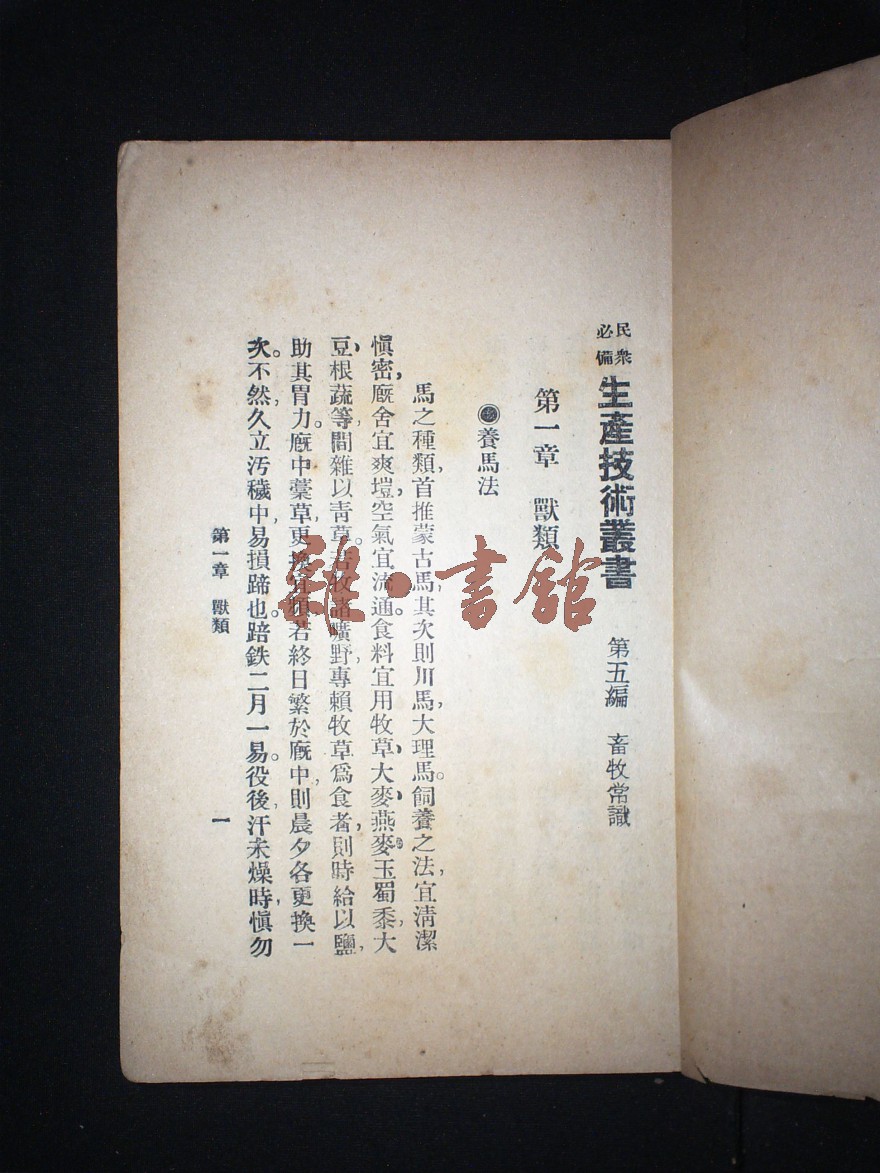 民衆
必備
生產技術叢書 第五編 畜牧常識
第一章 獸類
養馬法
馬之種類，首推蒙古馬，其次則川馬，大理馬。飼養之法，宜清潔
慎密，廐舍宜爽塏，空氣宜流通。食料宜用牧草，大麥，燕麥，玉蜀黍，大
豆，根蔬等，間雜以靑草。若牧諸曠野，專賴牧草爲食者，則時給以鹽，
助其胃力。廐中藁草，更換宜頻，若終日繁於廐中，則晨夕各更換一
次。不然，久立汚穢中，易損蹄也。踣鉄二月一易。役後，汗未燥時，愼勿
第一章 獸類
一
雜·書館